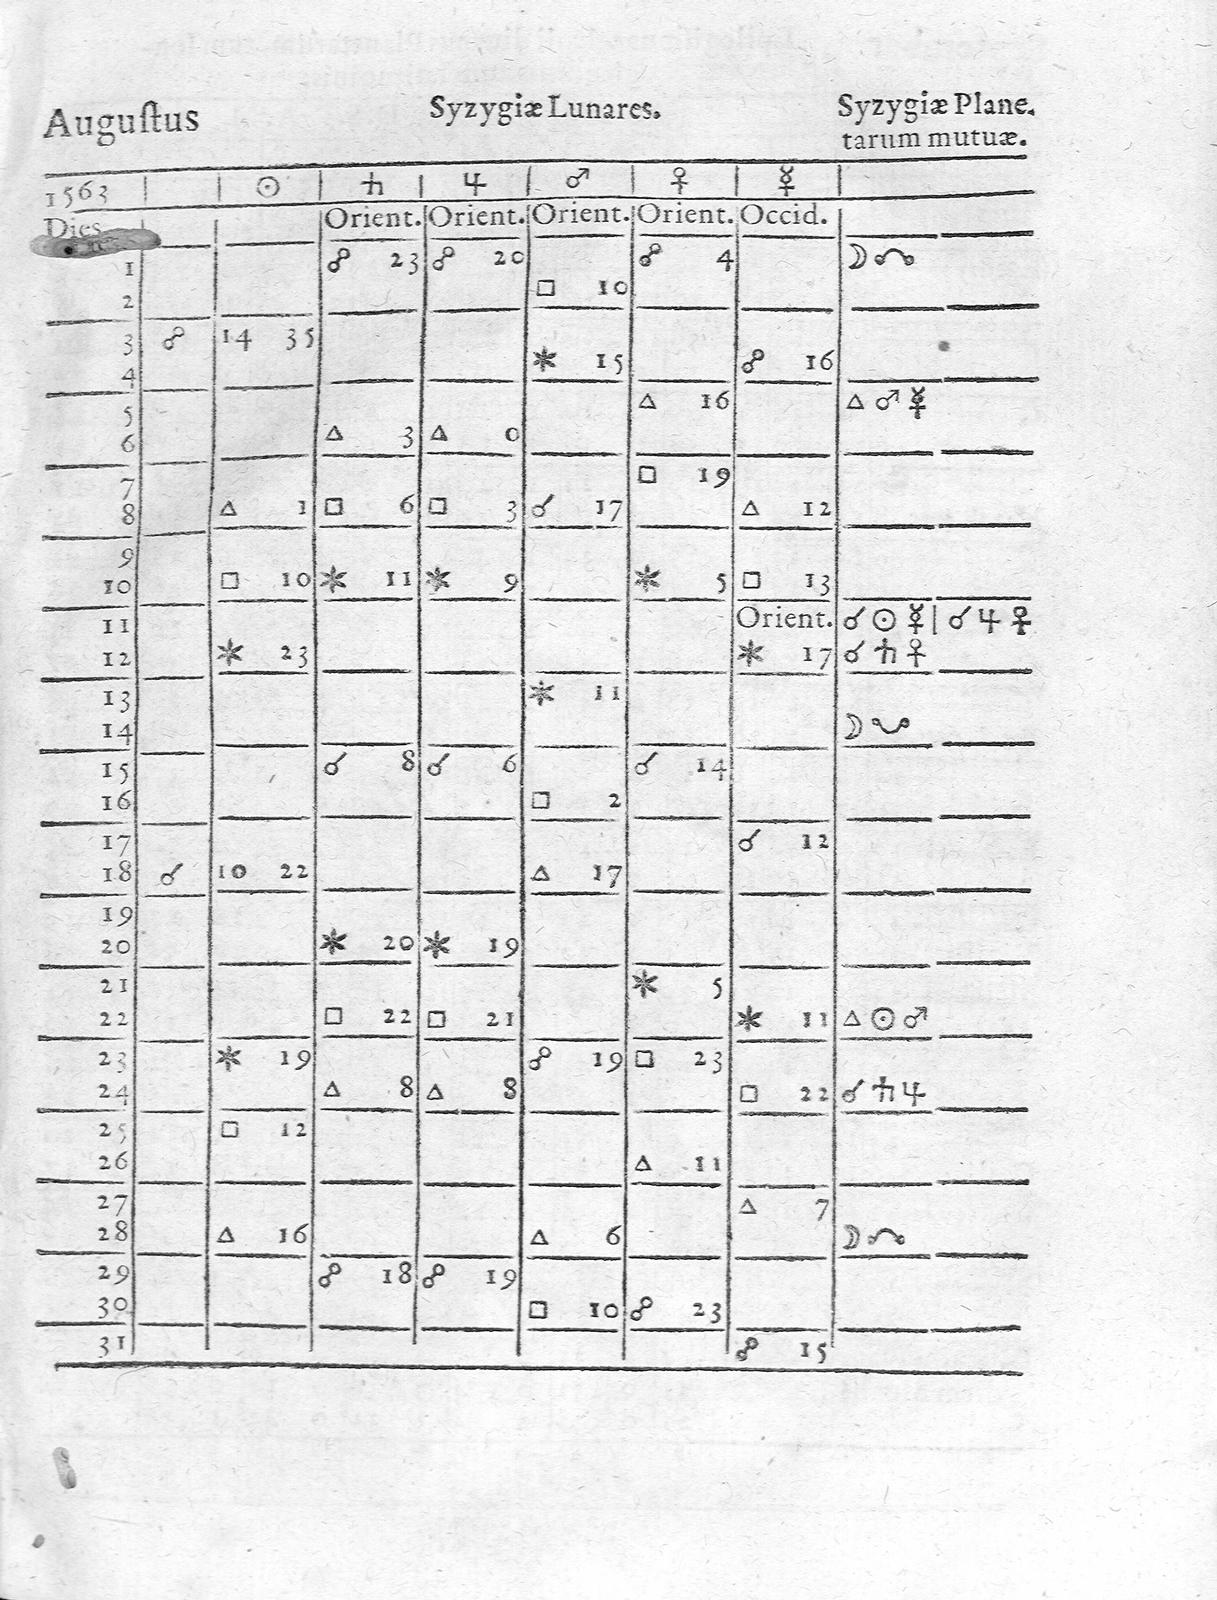 Auguſtus Syzygiæ Lunares. Syzygiæ Plane,
tarum mutuæ.
1563 ☉ ♄ ♃ ♂ ♀ ☿
Dies Orient. Orient. Orient. Orient. Occid.
1 ☍ 23 ☍ 20 ☍ 4 ☽ ☊
2 □ 10
3 ☍ 14 35
4 ⚹ 15 ☍ 16
5 △ 16 △ ♂ ☿
6 △ 3 △ 0
7 □ 19
8 △ 1 □ 6 □ 3 ☌ 17 △ 12
9
10 □ 10 ⚹ 11 ⚹ 9 ⚹ 5 □ 13
11 Orient. ☌ ☉ ☿ | ☌ ♃ ♀
12 ⚹ 23 ⚹ 17 ☌ ♄ ♀
13 ⚹ 11
14 ☽ ☋
15 ☌ 8 ☌ 6 ☌ 14
16 □ 2
17 ☌ 12
18 ☌ 10 22 △ 17
19
20 ⚹ 20 ⚹ 19
21 ⚹ 5
22 □ 22 □ 21 ⚹ 11 △ ☉ ♂
23 ⚹ 19 ☍ 19 □ 23
24 △ 8 △ 8 □ 22 ☌ ♄ ♃
25 □ 12
26 △ 11
27 △ 7
28 △ 16 △ 6 ☽ ☊
29 ☍ 18 ☍ 19
30 □ 10 ☍ 23
31 ☍ 15